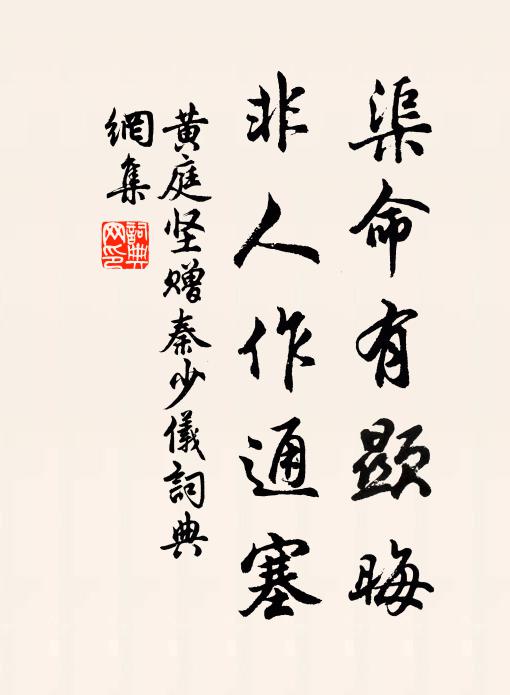 渠命有顕晦
非人作通塞
黄庭坚赠秦少儀詞典
網集
詞典
网印